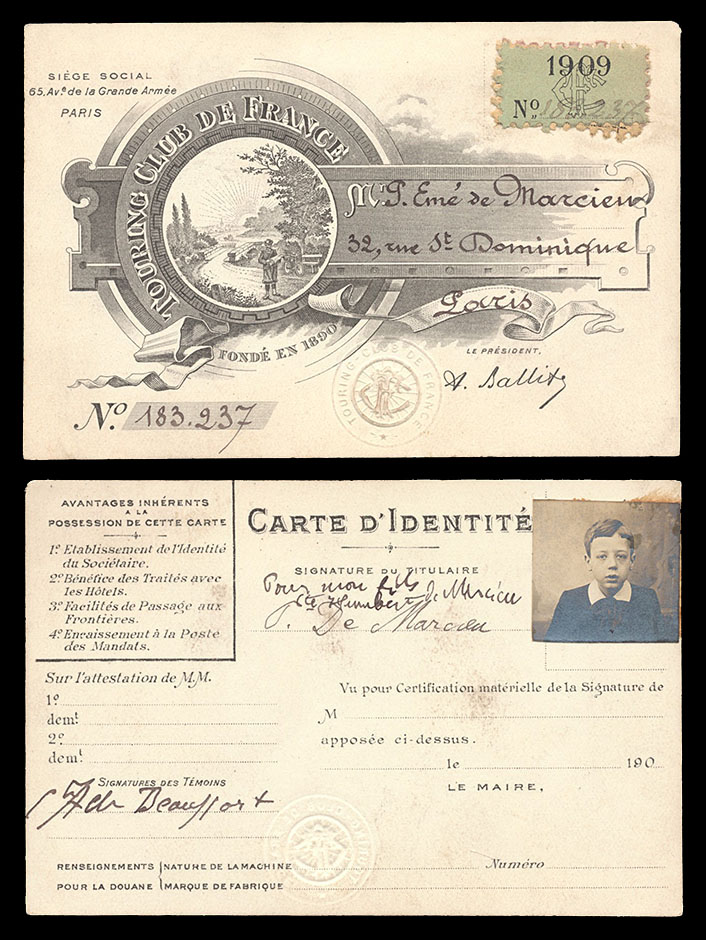 SIÈGE SOCIAL
65, Avᵉ de la Grande Armée
PARIS
1909
Nº 183237
TOURING CLUB DE FRANCE
Mʳ P. Emé de Marcieu
32, rue Sᵗ Dominique
Paris
FONDÉ EN 1890
LE PRÉSIDENT,
A. Ballif
TOURING-CLUB DE FRANCE
Nº 183.237
AVANTAGES INHÉRENTS
A LA
POSSESSION DE CETTE CARTE
1º Etablissement de l'Identité
du Sociétaire.
2º Bénéfice des Traités avec
les Hôtels.
3º Facilités de Passage aux
Frontières.
4º Encaissement à la Poste
des Mandats.
CARTE D'IDENTITÉ
SIGNATURE DU TITULAIRE
Pour mon fils
Cte Humbert de Marcieu
P. De Marcieu
Sur l'attestation de M.M.
1º
demᵗ
2º
demᵗ
SIGNATURES DES TÉMOINS
de Beaufort
Vu pour Certification matérielle de la Signature de
M
apposée ci-dessus.
le 190
LE MAIRE,
RENSEIGNEMENTS NATURE DE LA MACHINE Numéro
POUR LA DOUANE MARQUE DE FABRIQUE